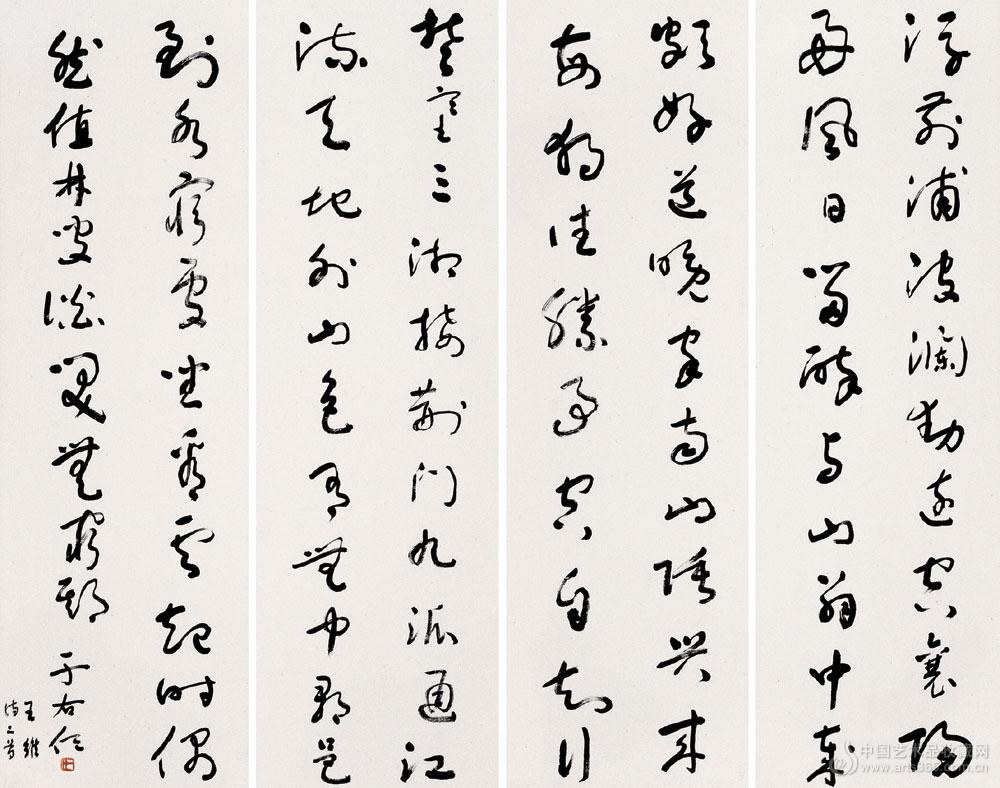 浮前浦波瀾動遠空襄陽
好風日留醉與山翁中歲
頗好道晚家南山陲興來
每獨往勝事空自知行
楚塞三湘接荊門九派通江
流天地外山色有無中郡邑
到水窮處坐看雲起時偶
然值林叟談笑無還期
于右任
王維
詩二首
中国艺术品收藏网